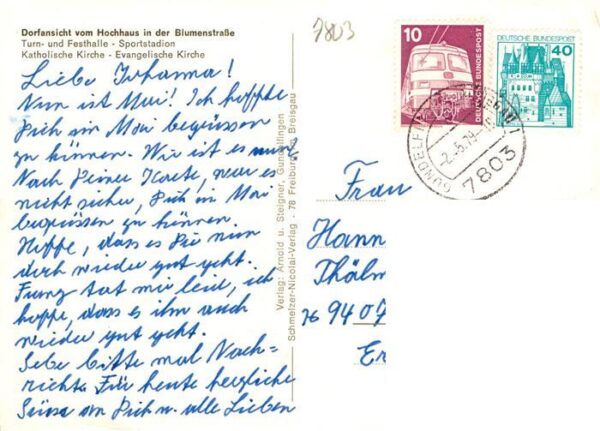 Dorfansicht vom Hochhaus in der Blumenstraße
Turn- und Festhalle - Sportstadion
Katholische Kirche - Evangelische Kirche
7803
Liebe Johanna!
Nun ist Mai! Ich hoffte
Dich im Mai begrüssen
zu können. Wie ist es nun?
Nach Deiner Karte, war es
nicht sicher, Dich im Mai
begrüssen zu können.
Hoffe, dass es Dir nun
doch wieder gut geht.
tut mir leid, ich
hoffe, dass es ihm auch
wieder gut geht.
Gebe bitte mal Nach=
richt. Für heute herzliche
Grüsse an Dich u. alle Lieben
Verlag: Arnold u. Steigner, Gundelfingen
Schmelzer-Nicolai-Verlag - 78 Freiburg im Breisgau
10
DEUTSCHE BUNDESPOST
DEUTSCHE BUNDESPOST
40
GUNDELFINGEN
-2.-5.79
7803
Frau
Hann
Thälm
9409
Er